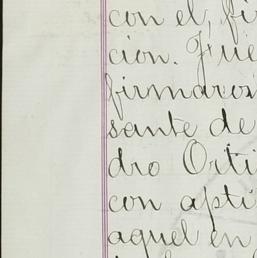 con el, fi
cion. Fue
firmaron
sante de
dro Orti
con apti
aquel en